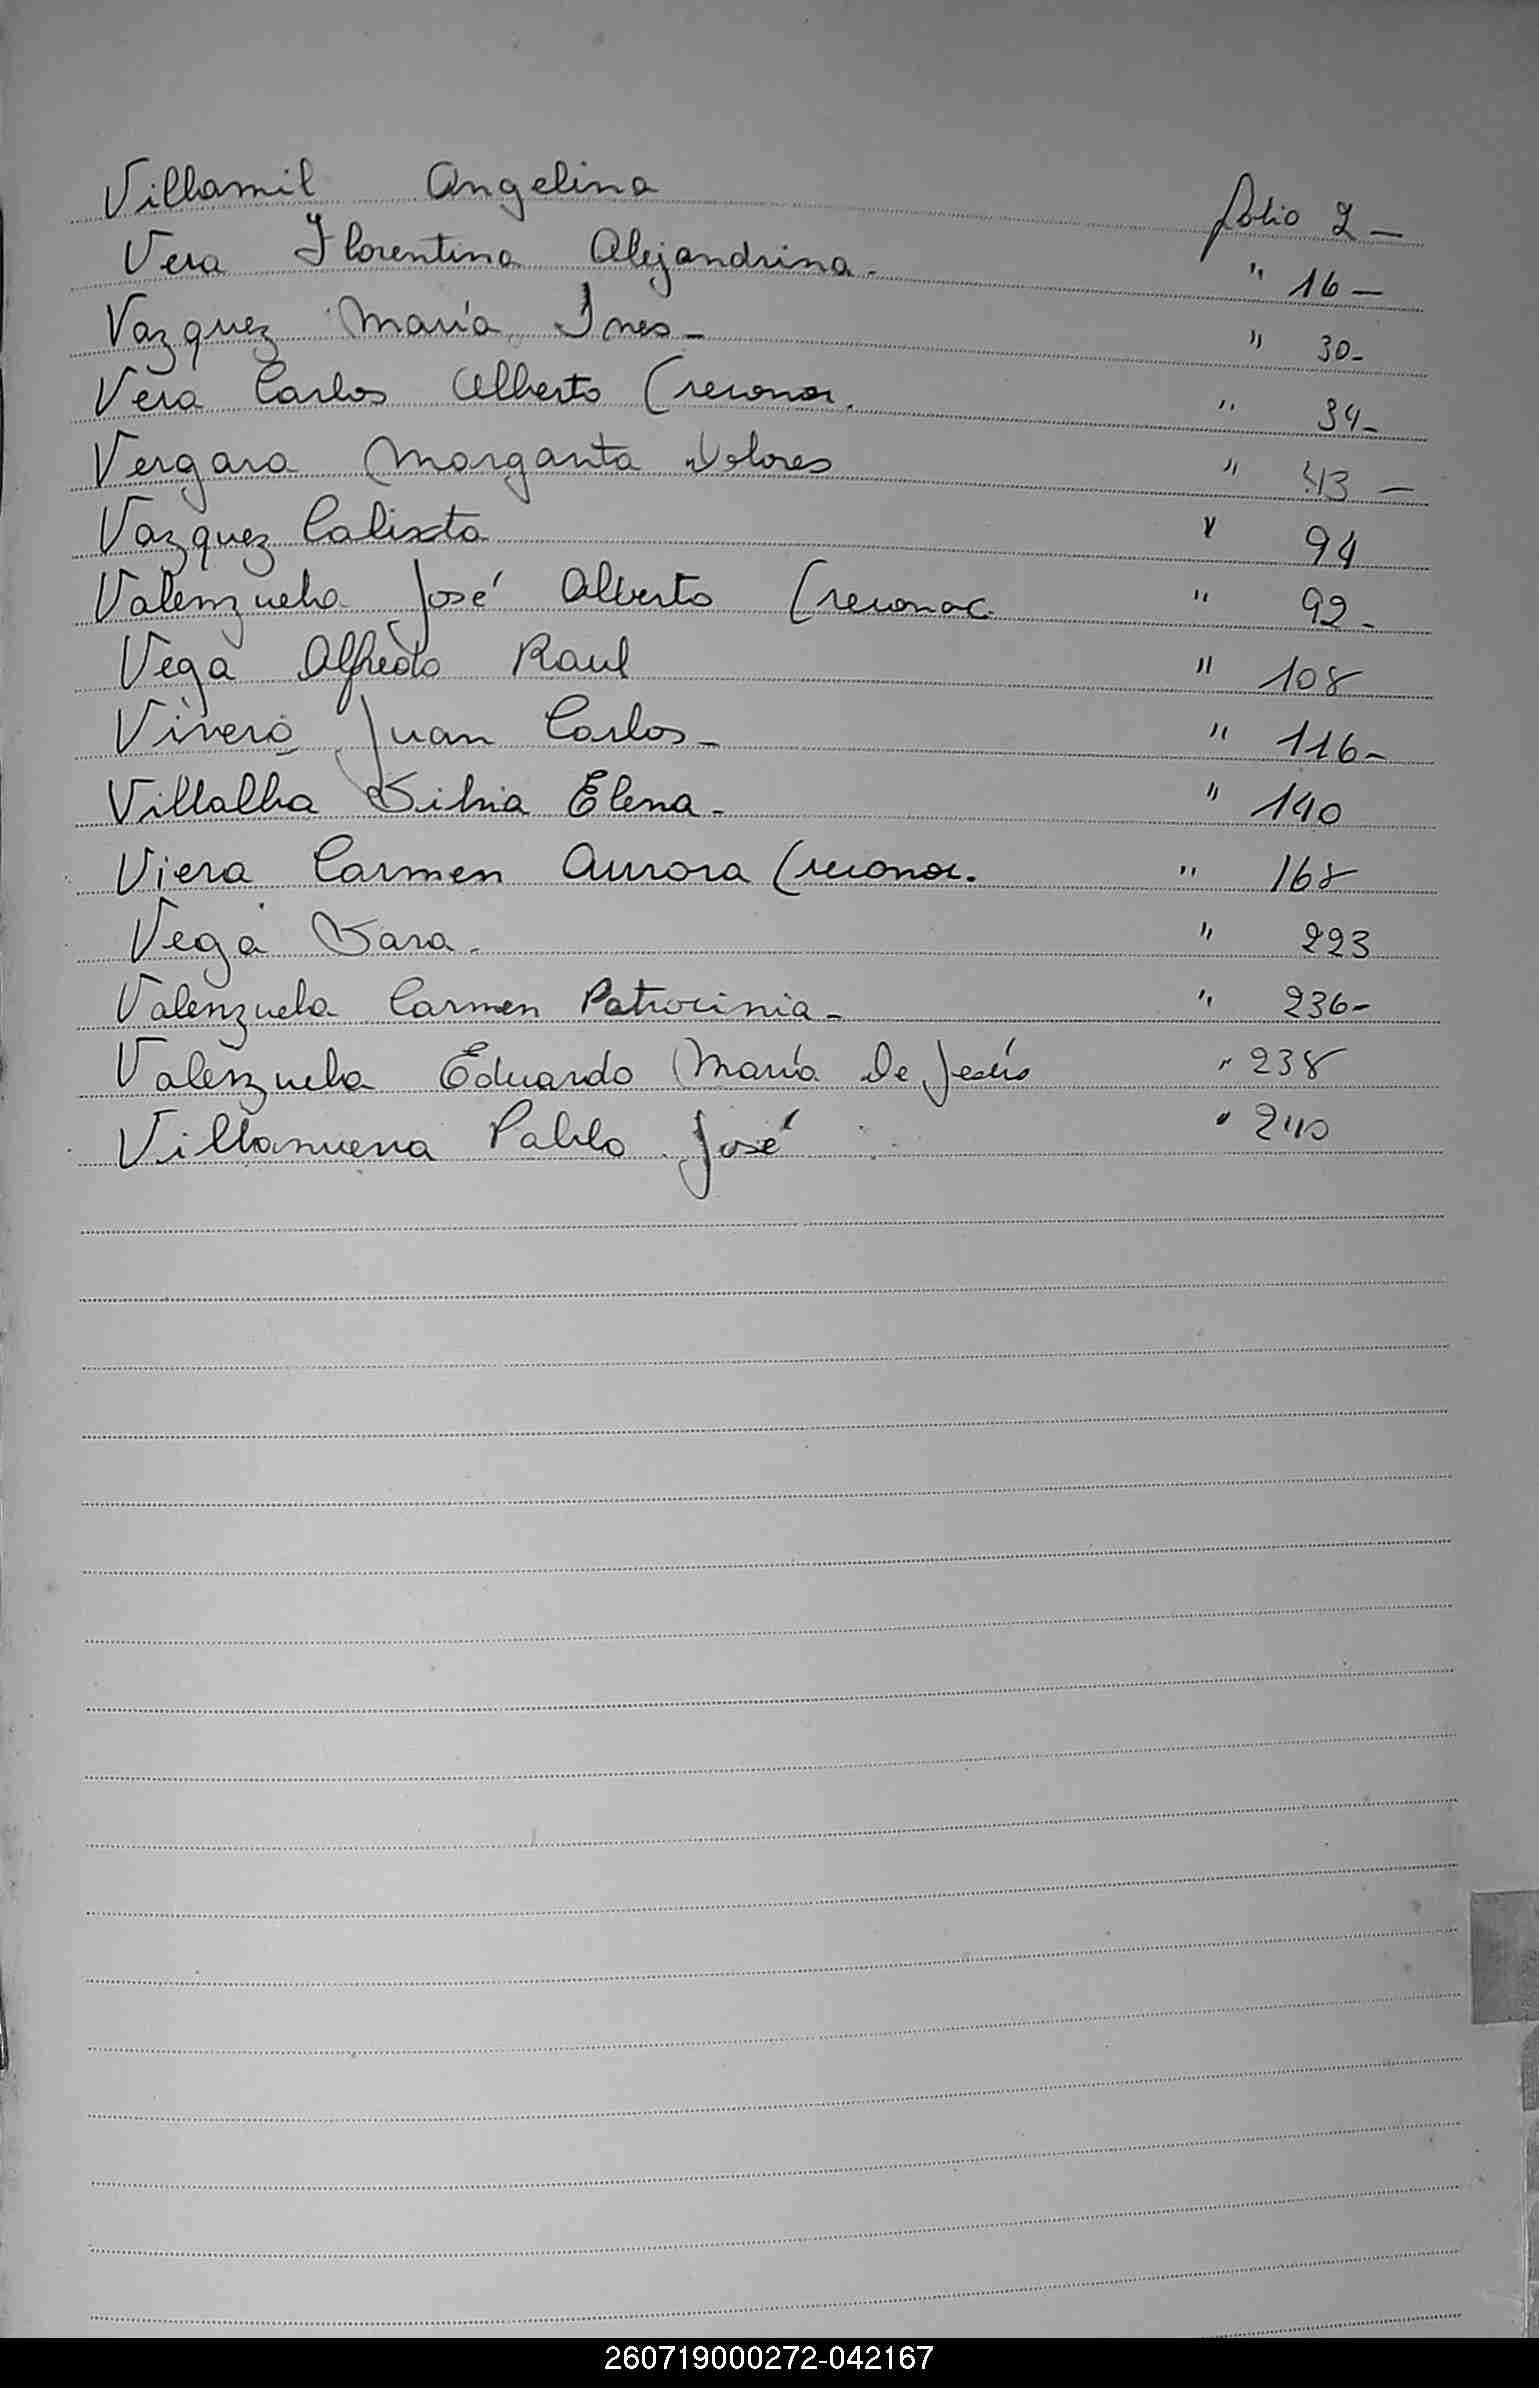 Villamil Angelina folio 2 —
Vera Florentina Alejandrina. " 16 —
Vazquez María Ines - " 30 -
Vera Carlos Alberto (reconoc. " 34 -
Vergara Margarita Dolores " 43 —
Vazquez Calixto " 94
Valenzuela José Alberto (reconoc. " 92 -
Vega Alfredo Raul " 108
Vivero Juan Carlos - " 116 -
Villalba Silvia Elena - " 140
Viera Carmen Aurora (reconoc. " 168
Vega Sara - " 223
Valenzuela Carmen Patrocinia - " 236 -
Valenzuela Eduardo María De Jesús " 238
Villanueva Pablo José " 240
260719000272-042167